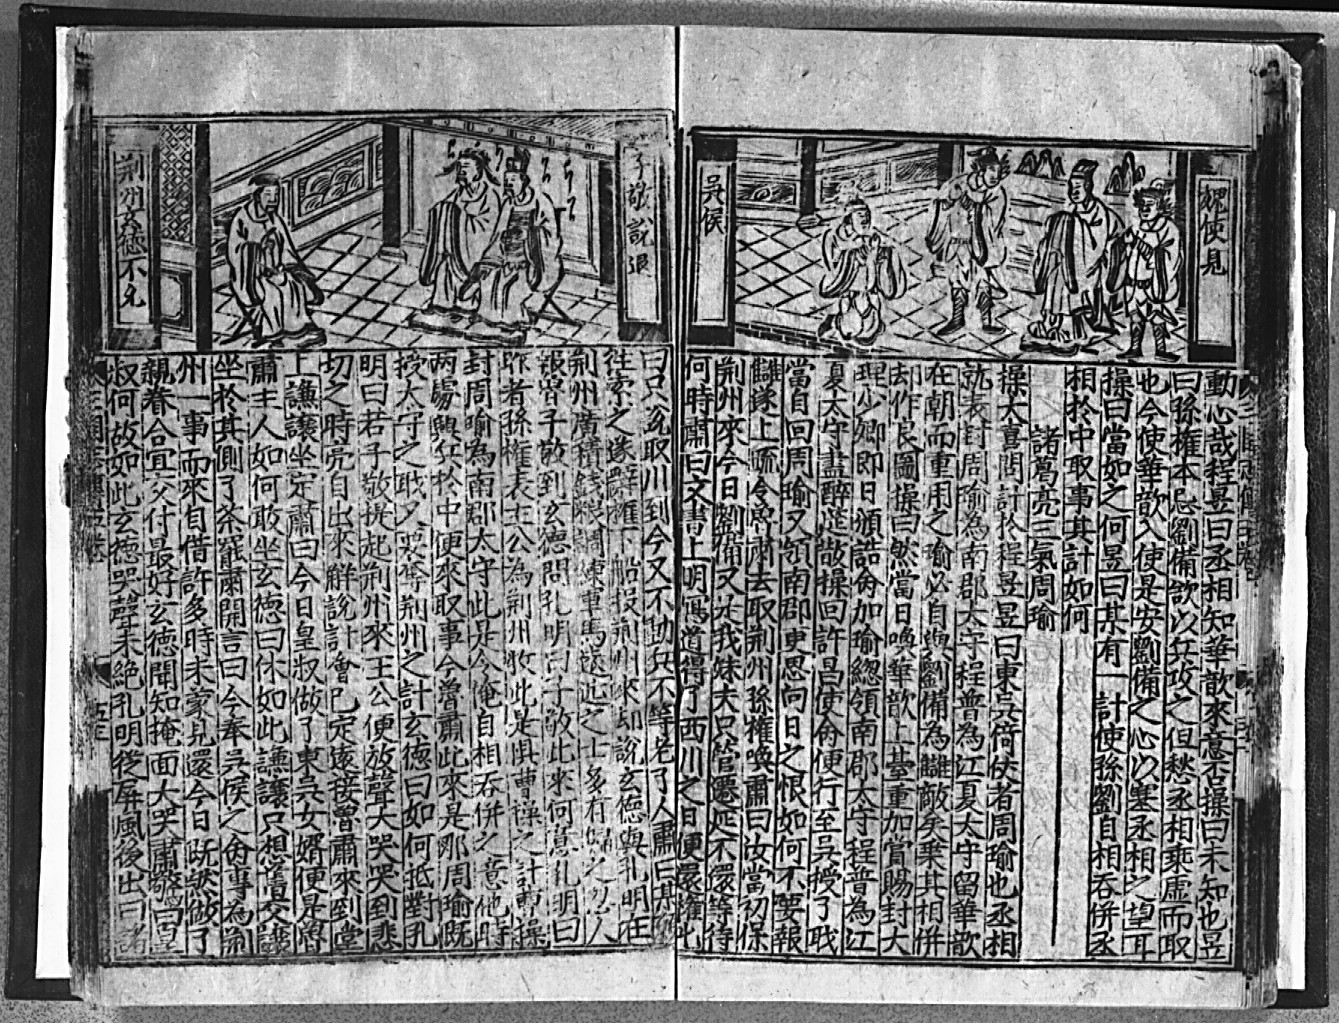 魏使見
吳侯
動心哉程昱曰丞相知華歆來意否操曰未知也昱
曰孫權本忌劉備欲以兵攻之但愁丞相乘虛而取
也今使華歆入使是安劉備之心以塞丞相之望耳
操曰當如之何昱曰某有一計使孫劉自相吞併丞
相於中取事其計如何
諸葛亮三氣周瑜
操大喜問計於程昱昱曰東吳倚仗者周瑜也丞相
就表封周瑜為南郡太守程普為江夏太守留華歆
在朝而重用之瑜必自與劉備為讎敵矣乘其相併
却作良圖操曰然當日喚華歆上臺重加賞賜封大
理少卿即日頒詔命加瑜總領南郡太守程普為江
夏太守盡醉筵散操回許昌使命便行至吳授了職
當自回周瑜又領南郡更思向日之恨如何不要報
讎遂上疏令魯肅去取荊州孫權喚肅曰汝當初保
荊州來今日劉備又不我妹夫只管遷延不還等待
何時肅曰文書上明寫道得了西川之日便還權叱
子敬說退
荊州玄德不允
曰只說取川到今又不動兵不等老了人肅曰某
往索之遂辭權下船投荊州來却說玄德與孔明在
荊州廣積錢粮調練軍馬遠近之士多有歸之忽人
報魯子敬到玄德問孔明曰子敬此來何意孔明曰
昨者孫權表主公為荊州牧此是惧曹操之計曹操
封周瑜為南郡太守此是令俺自相吞併之意他
兩處興兵於中便來取事今魯肅此來是那周瑜既
授太守之職又要索荊州之計玄德曰如何抵對孔
明曰若子敬提起荊州來主公便放聲大哭哭到悲
切之時亮自出來解說計會已定遂接魯肅來到堂
上謙讓坐定肅曰今日皇叔做了東吳女婿便是魯
肅主人如何敢坐玄德曰休如此謙讓只想舊交讓
坐於其側了茶罷肅開言曰今奉吳侯之命事為荊
州一事而來自借許多時未蒙見還今日既然做了
親眷合宜交付最好玄德聞知掩面大哭肅驚曰皇
叔何故如此玄德哭聲未絕孔明從屏風後出曰諸